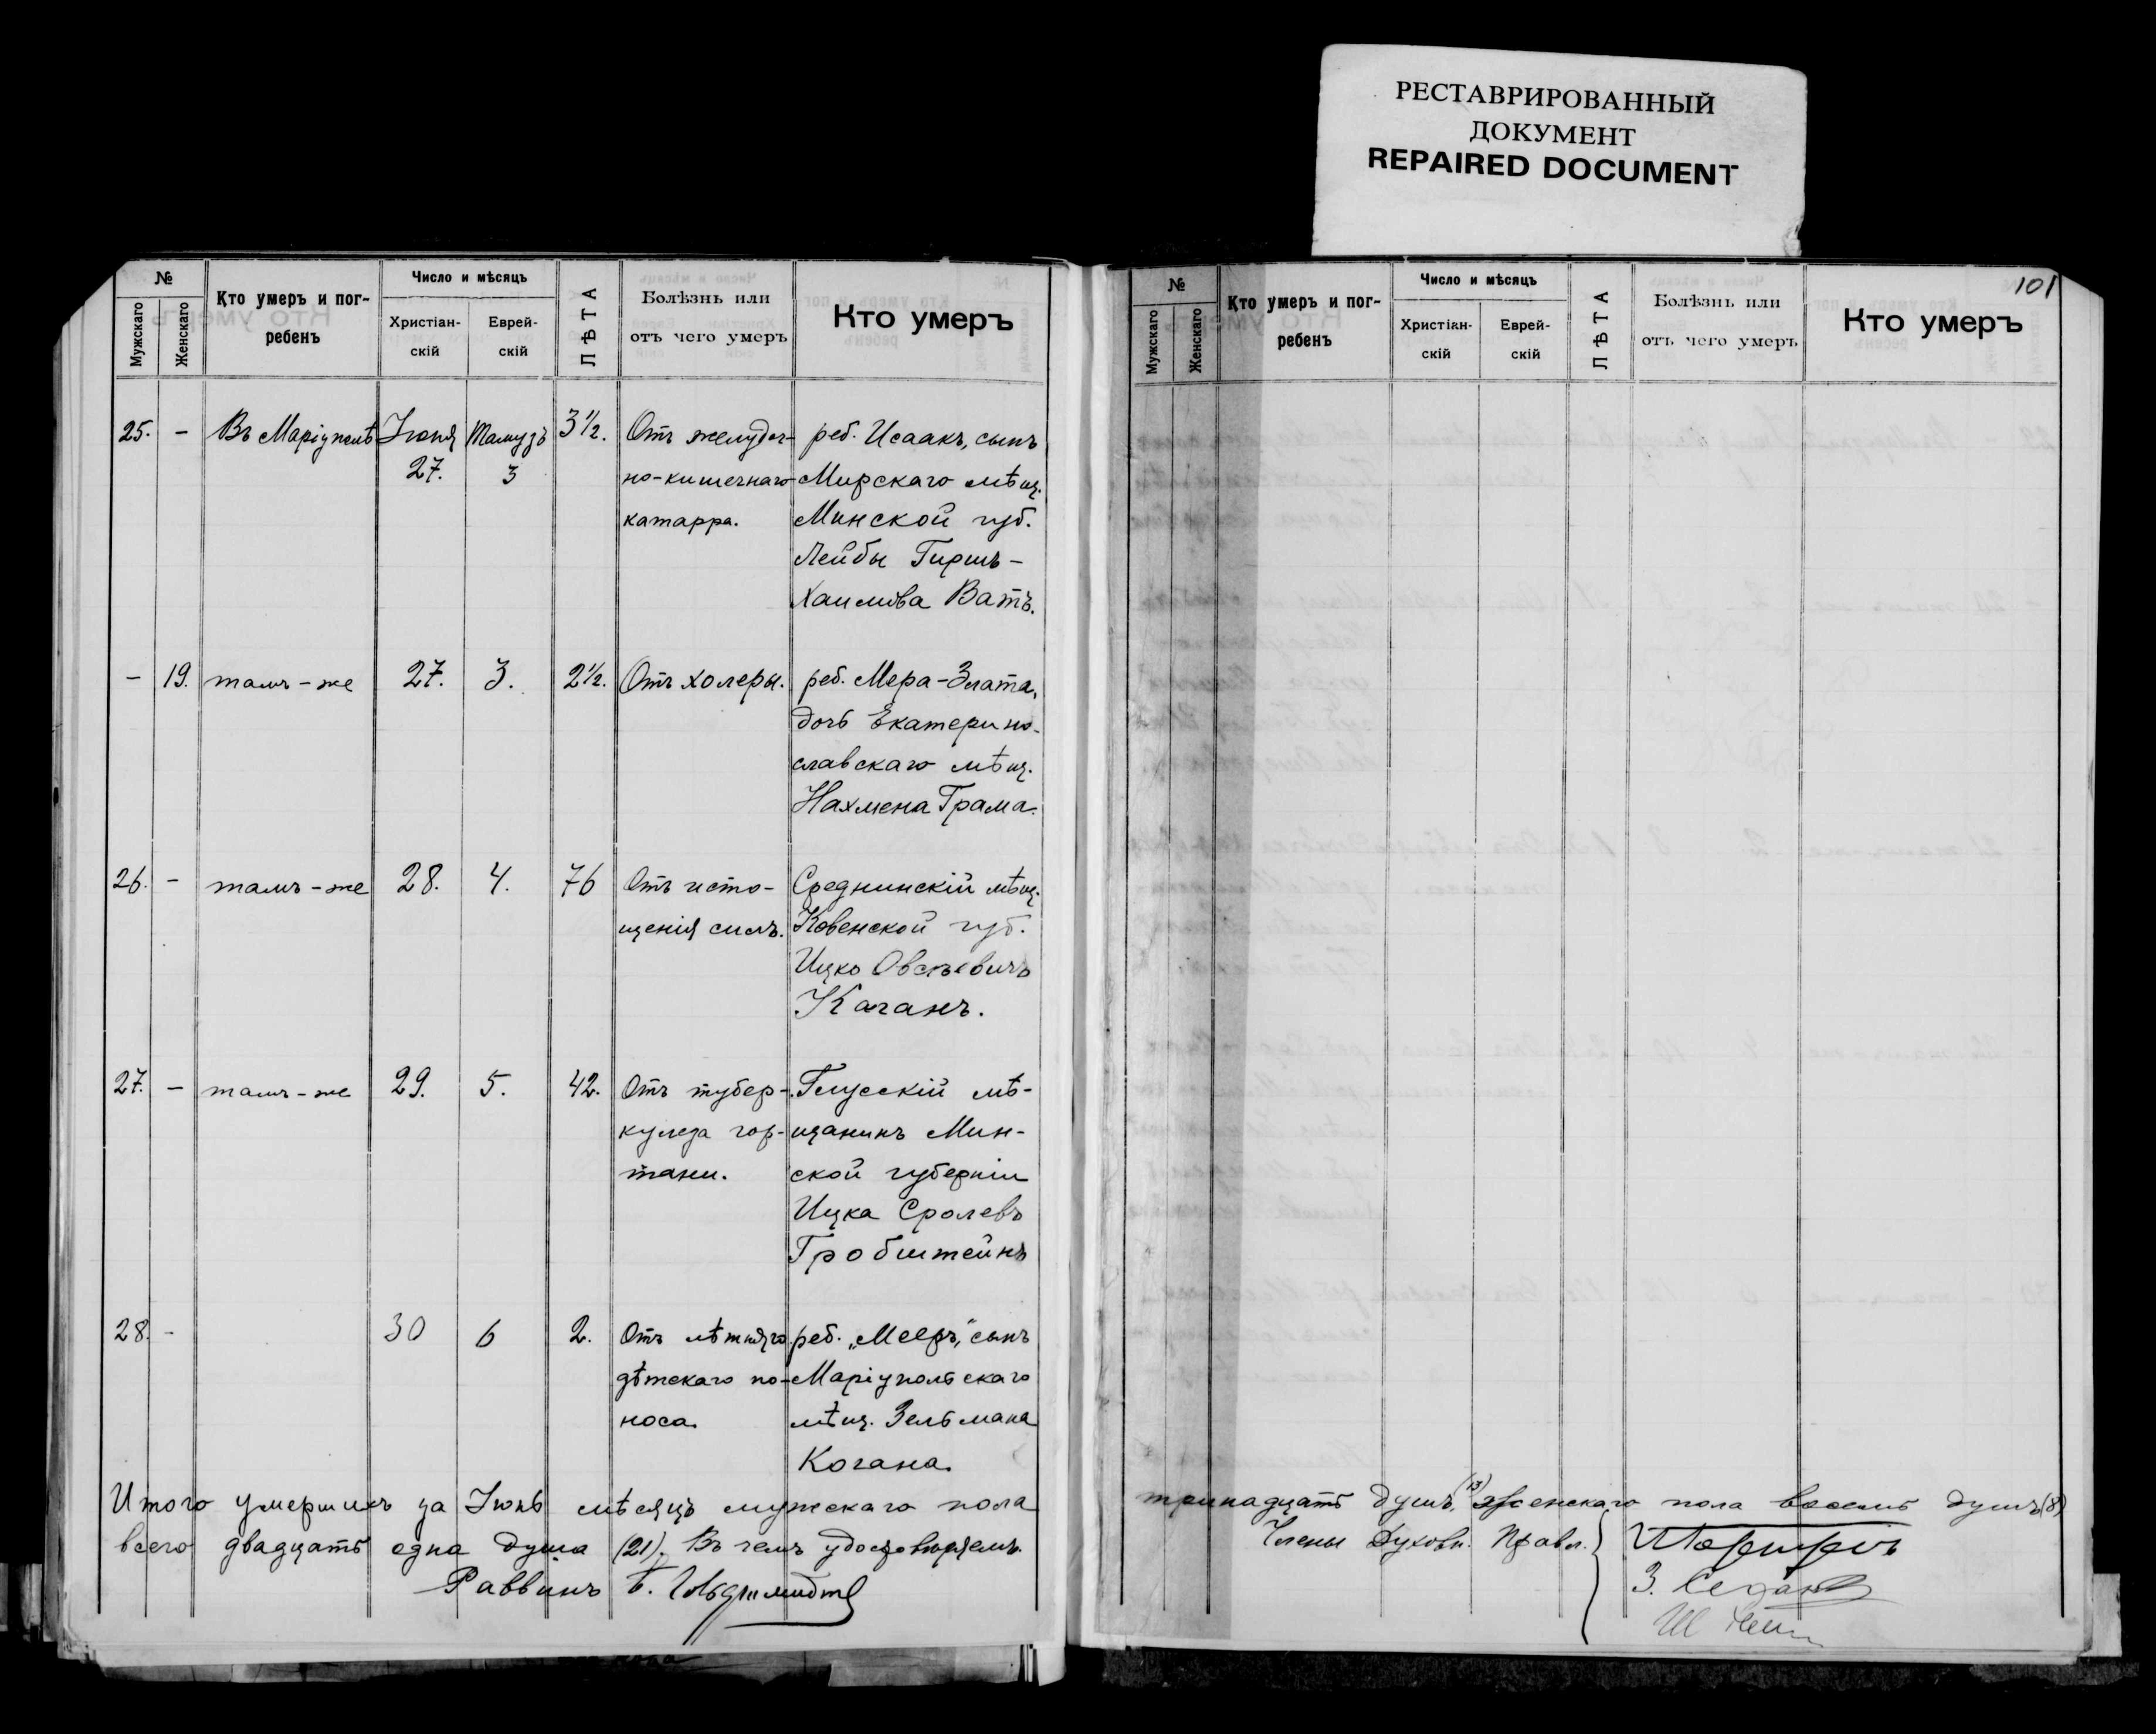 РЕСТАВРИРОВАННЫЙ
ДОКУМЕНТ
REPAIRED DOCUMENT
№
Мужскаго
Женскаго
Кто умеръ и пог-
ребенъ
Число и мѣсяцъ
Христіан-
скій
Еврей-
скій
ЛѢТА
Болѣзнь или
отъ чего умеръ
Кто умеръ
25. - Въ Маріуполѣ Іюня Тамузъ 3½. Отъ желудоч- реб. Исаакъ, сынъ
27. 3 но-кишечнаго Мирскаго мѣщ.
катарра. Минской губ.
Лейбы Гиршъ-
Хаимова Ватъ.
- 19. тамъ-же 27. 3. 2½. Отъ холеры. реб. Мера-Злата,
дочь Екатерино-
славскаго мѣщ.
Нахмена Грама.
26. - тамъ-же 28. 4. 76 Отъ исто- Среднинскій мѣщ.
щенія силъ. Ковенской губ.
Ицко Овсѣевичъ
Каганъ.
27. - тамъ-же 29. 5. 42. Отъ тубер- Глусскій мѣ-
кулеза гор- щанинъ Мин-
тани. ской губерніи
Ицка Сролевъ
Гробштейнъ
28. - 30 6 2. Отъ лѣтняго реб. „Мееръ," сынъ
дѣтскаго по- Маріупольскаго
носа. мѣщ. Зельмана
Когана.
Итого умершихъ за Іюнь мѣсяцъ мужскаго пола
всего двадцать одна душа (21). Въ чемъ удостовѣряемъ.
Раввинъ
101
№
Мужскаго
Женскаго
Кто умеръ и пог-
ребенъ
Число и мѣсяцъ
Христіан-
скій
Еврей-
скій
ЛѢТА
Болѣзнь или
отъ чего умеръ
Кто умеръ
тринадцать душъ, (13) женскаго пола восемь душъ (8)
Члены Духовн. Правл.